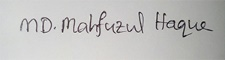 MD. Mahfuzul Haque